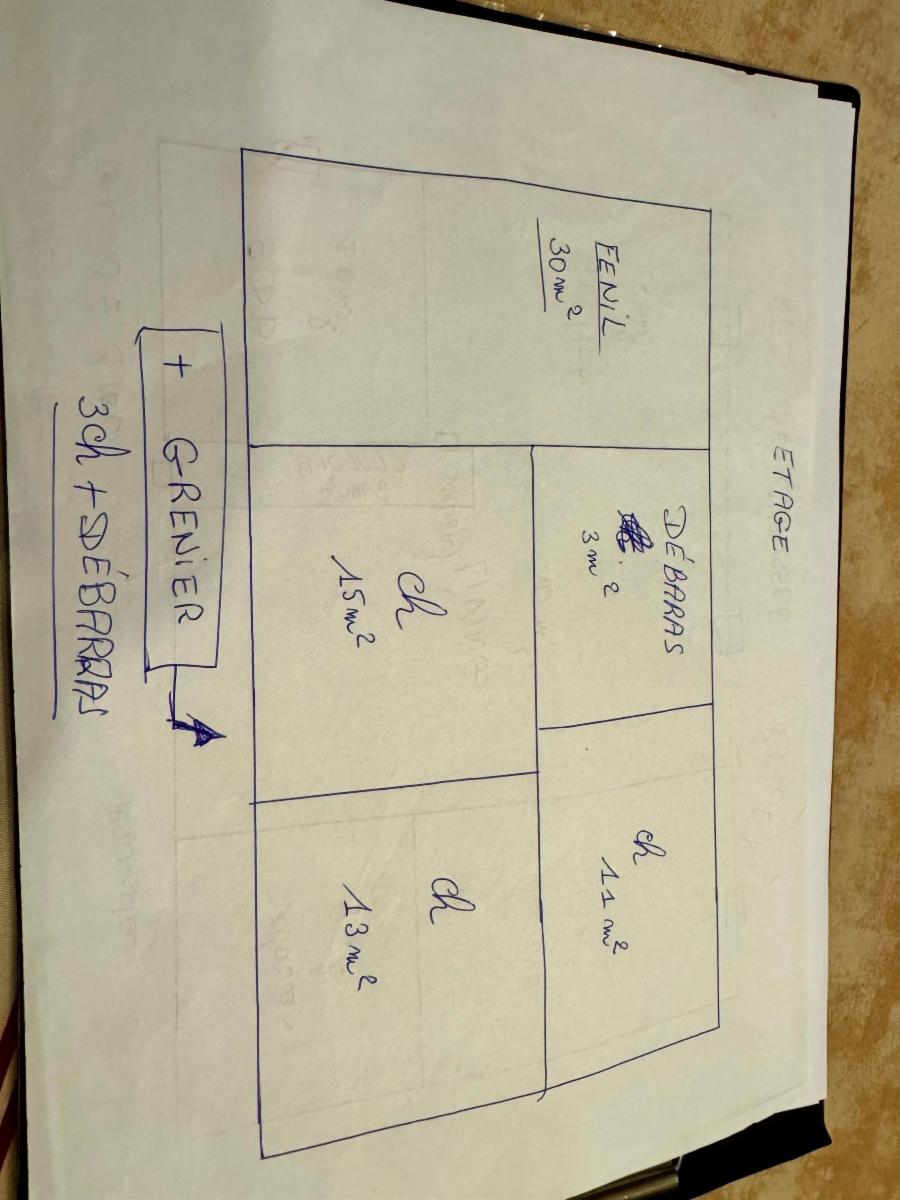 ETAGE
FENIL
30m²
DÉBARAS
3m²
ch
11m²
ch
15m²
ch
13m²
+ GRENIER
3ch + DÉBARRAS